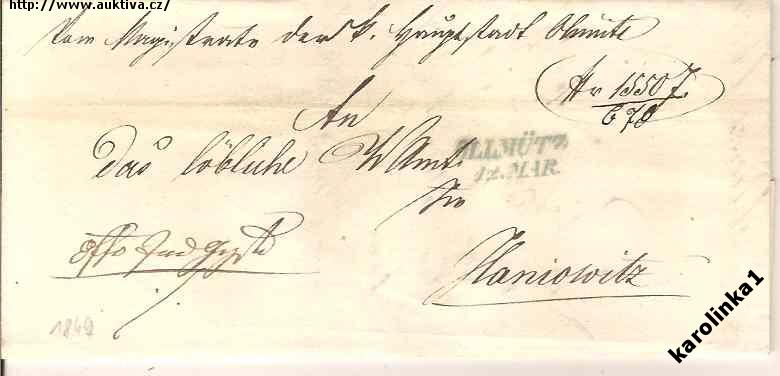 http://www.auktiva.cz/
Vom Magistrate der k. Hauptstadt Olmütz
Nr 1550 J.
678
An
das löbliche
OLLMÜTZ
12. MAR.
zu
Haniowitz
1847
karolinka1